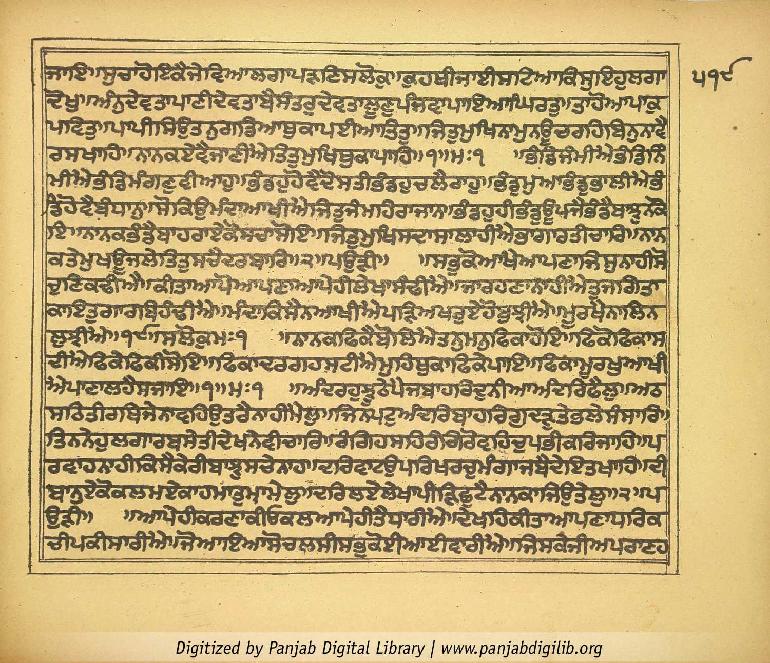 ਜਾਇ॥ਸੁਚਾਹੋਇਕੈਜੇਵਿਆਲਗਾਪੜਣਿਸਲੋਕੁ॥ਕੁਹਥੀਜਾਈਸਾਟਿਆਕਿਸੁਇਹੁਲਗਾ
ਦੋਖੁ॥ਅੰਨੁਦੇਵਤਾਪਾਣੀਦੇਵਤਾਬੈਸੰਤਰੁਦੇਵਤਾਲੂਣੁਪੰਜਿਵਾਪਾਇਆਘਿਰਤੁ॥ਤਾਹੋਆਪਾਕੁ
ਪਵਿਤੁ॥ਪਾਪੀਸਿਉਤਨੁਗਡਿਆਥੁਕਾਪਈਆਤਿਤੁ॥ਜਿਤੁਮੁਖਿਨਾਮੁਨਊਚਰਹਿਬਿਨੁਨਾਵੈ
ਰਸਖਾਹਿ॥ਨਾਨਕਏਵੈਜਾਣੀਐਤਿਤੁਮੁਖਿਥੁਕਾਪਾਹਿ॥੧॥ਮਃ੧ ॥ਭੰਡਿਜੰਮੀਐਭੰਡਿਨਿੰ
ਮੀਐਭੰਡਿਮੰਗਣੁਵੀਆਹੁ॥ਭੰਡਹੁਹੋਵੈਦੋਸਤੀਭੰਡਹੁਚਲੈਰਾਹੁ॥ਭੰਡੁਮੁਆਭੰਡੁਭਾਲੀਐਭੰ
ਡਿਹੋਵੈਬੰਧਾਨੁ॥ਸੋਕਿਉਮੰਦਾਆਖੀਐਜਿਤੁਜੰਮਹਿਰਾਜਾਨ॥ਭੰਡਹੁਹੀਭੰਡੁਊਪਜੈਭੰਡੈਬਾਝੁਨਕੋ
ਇ॥ਨਾਨਕਭੰਡੈਬਾਹਰਾਏਕੋਸਚਾਸੋਇ॥ਜਿਤੁਮੁਖਿਸਦਾਸਾਲਾਹੀਐਭਾਗਾਰਤੀਚਾਰਿ॥ਨਾਨ
ਕਤੇਮੁਖਊਜਲੇਤਿਤੁਸਚੈਦਰਬਾਰਿ॥੨॥ਪਉੜੀ॥ ॥ਸਭੁਕੋਆਖੈਆਪਣਾਜਿਸੁਨਾਹੀਸੋ
ਚੁਣਿਕਢੀਐ॥ਕੀਤਾਆਪੋਆਪਣਾਆਪੇਹੀਲੇਖਾਸੰਢੀਐ॥ਜਾਰਹਣਾਨਾਹੀਐਤੁਜਗਿਤਾ
ਕਾਇਤੁਗਾਰਬਿਹੰਢੀਐ॥ਮੰਦਾਕਿਸੈਨਆਖੀਐਪੜਿਅਖਰੁਏਹੋਬੁਝੀਐ॥ਮੂਰਖੈਨਾਲਿਨ
ਲੁਝੀਐ॥੧੯॥ਸਲੋਕੁਮਃ੧ ॥ਨਾਨਕਫਿਕੈਬੋਲਿਐਤਨੁਮਨੁਫਿਕਾਹੋਇ॥ਫਿਕੋਫਿਕਾਸ
ਦੀਐਫਿਕੇਫਿਕੀਸੋਇ॥ਫਿਕਾਦਰਗਹਸਟੀਐਮੁਹਿਥੁਕਾਫਿਕੇਪਾਇ॥ਫਿਕਾਮੂਰਖੁਆਖੀ
ਐਪਾਣਾਲਹੈਸਜਾਇ॥੧॥ਮਃ੧ ॥ਅੰਦਰਹੁਝੂਠੇਪੈਜਬਾਹਰਿਦੁਨੀਆਅੰਦਰਿਫੈਲੁ॥ਅਠ
ਸਠਿਤੀਰਥਿਜੇਨਾਵਹਿਉਤਰੈਨਾਹੀਮੈਲੁ॥ਜਿਨਪਟੁਅੰਦਰਿਬਾਹਰਿਗੁਦੜੁਤੇਭਲੇਸੰਸਾਰਿ॥
ਤਿਨਨੇਹੁਲਗਾਰਬਸੇਤੀਦੇਖਨੇਵੀਚਾਰਿ॥ਰੰਗਿਹਸਹਿਰੰਗਿਰੋਵਹਿਚੁਪਭੀਕਰਿਜਾਹਿ॥ਪ
ਰਵਾਹਨਾਹੀਕਿਸੈਕੇਰੀਬਾਝੁਸਚੇਨਾਹ॥ਦਰਿਵਾਟਉਪਰਿਖਰਚੁਮੰਗਾਜਬੈਦੇਇਤਖਾਹਿ॥ਦੀ
ਬਾਨੁਏਕੋਕਲਮਏਕਾਹਮਾਤੁਮਾਮੇਲੁ॥ਦਰਿਲਏਲੇਖਾਪੀੜਿਛੁਟੈਨਾਨਕਾਜਿਉਤੇਲੁ॥੨॥ਪ
ਉੜੀ॥ ॥ਆਪੇਹੀਕਰਣਾਕੀਓਕਲਆਪੇਹੀਤੈਧਾਰੀਐ॥ਦੇਖਹਿਕੀਤਾਆਪਣਾਧਰਿਕ
ਚੀਪਕੀਸਾਰੀਐ॥ਜੋਆਇਆਸੋਚਲਸੀਸਭੁਕੋਈਆਈਵਾਰੀਐ॥ਜਿਸਕੇਜੀਅਪਰਾਣਹ
੫੧੯
Digitized by Panjab Digital Library | www.panjabdigilib.org